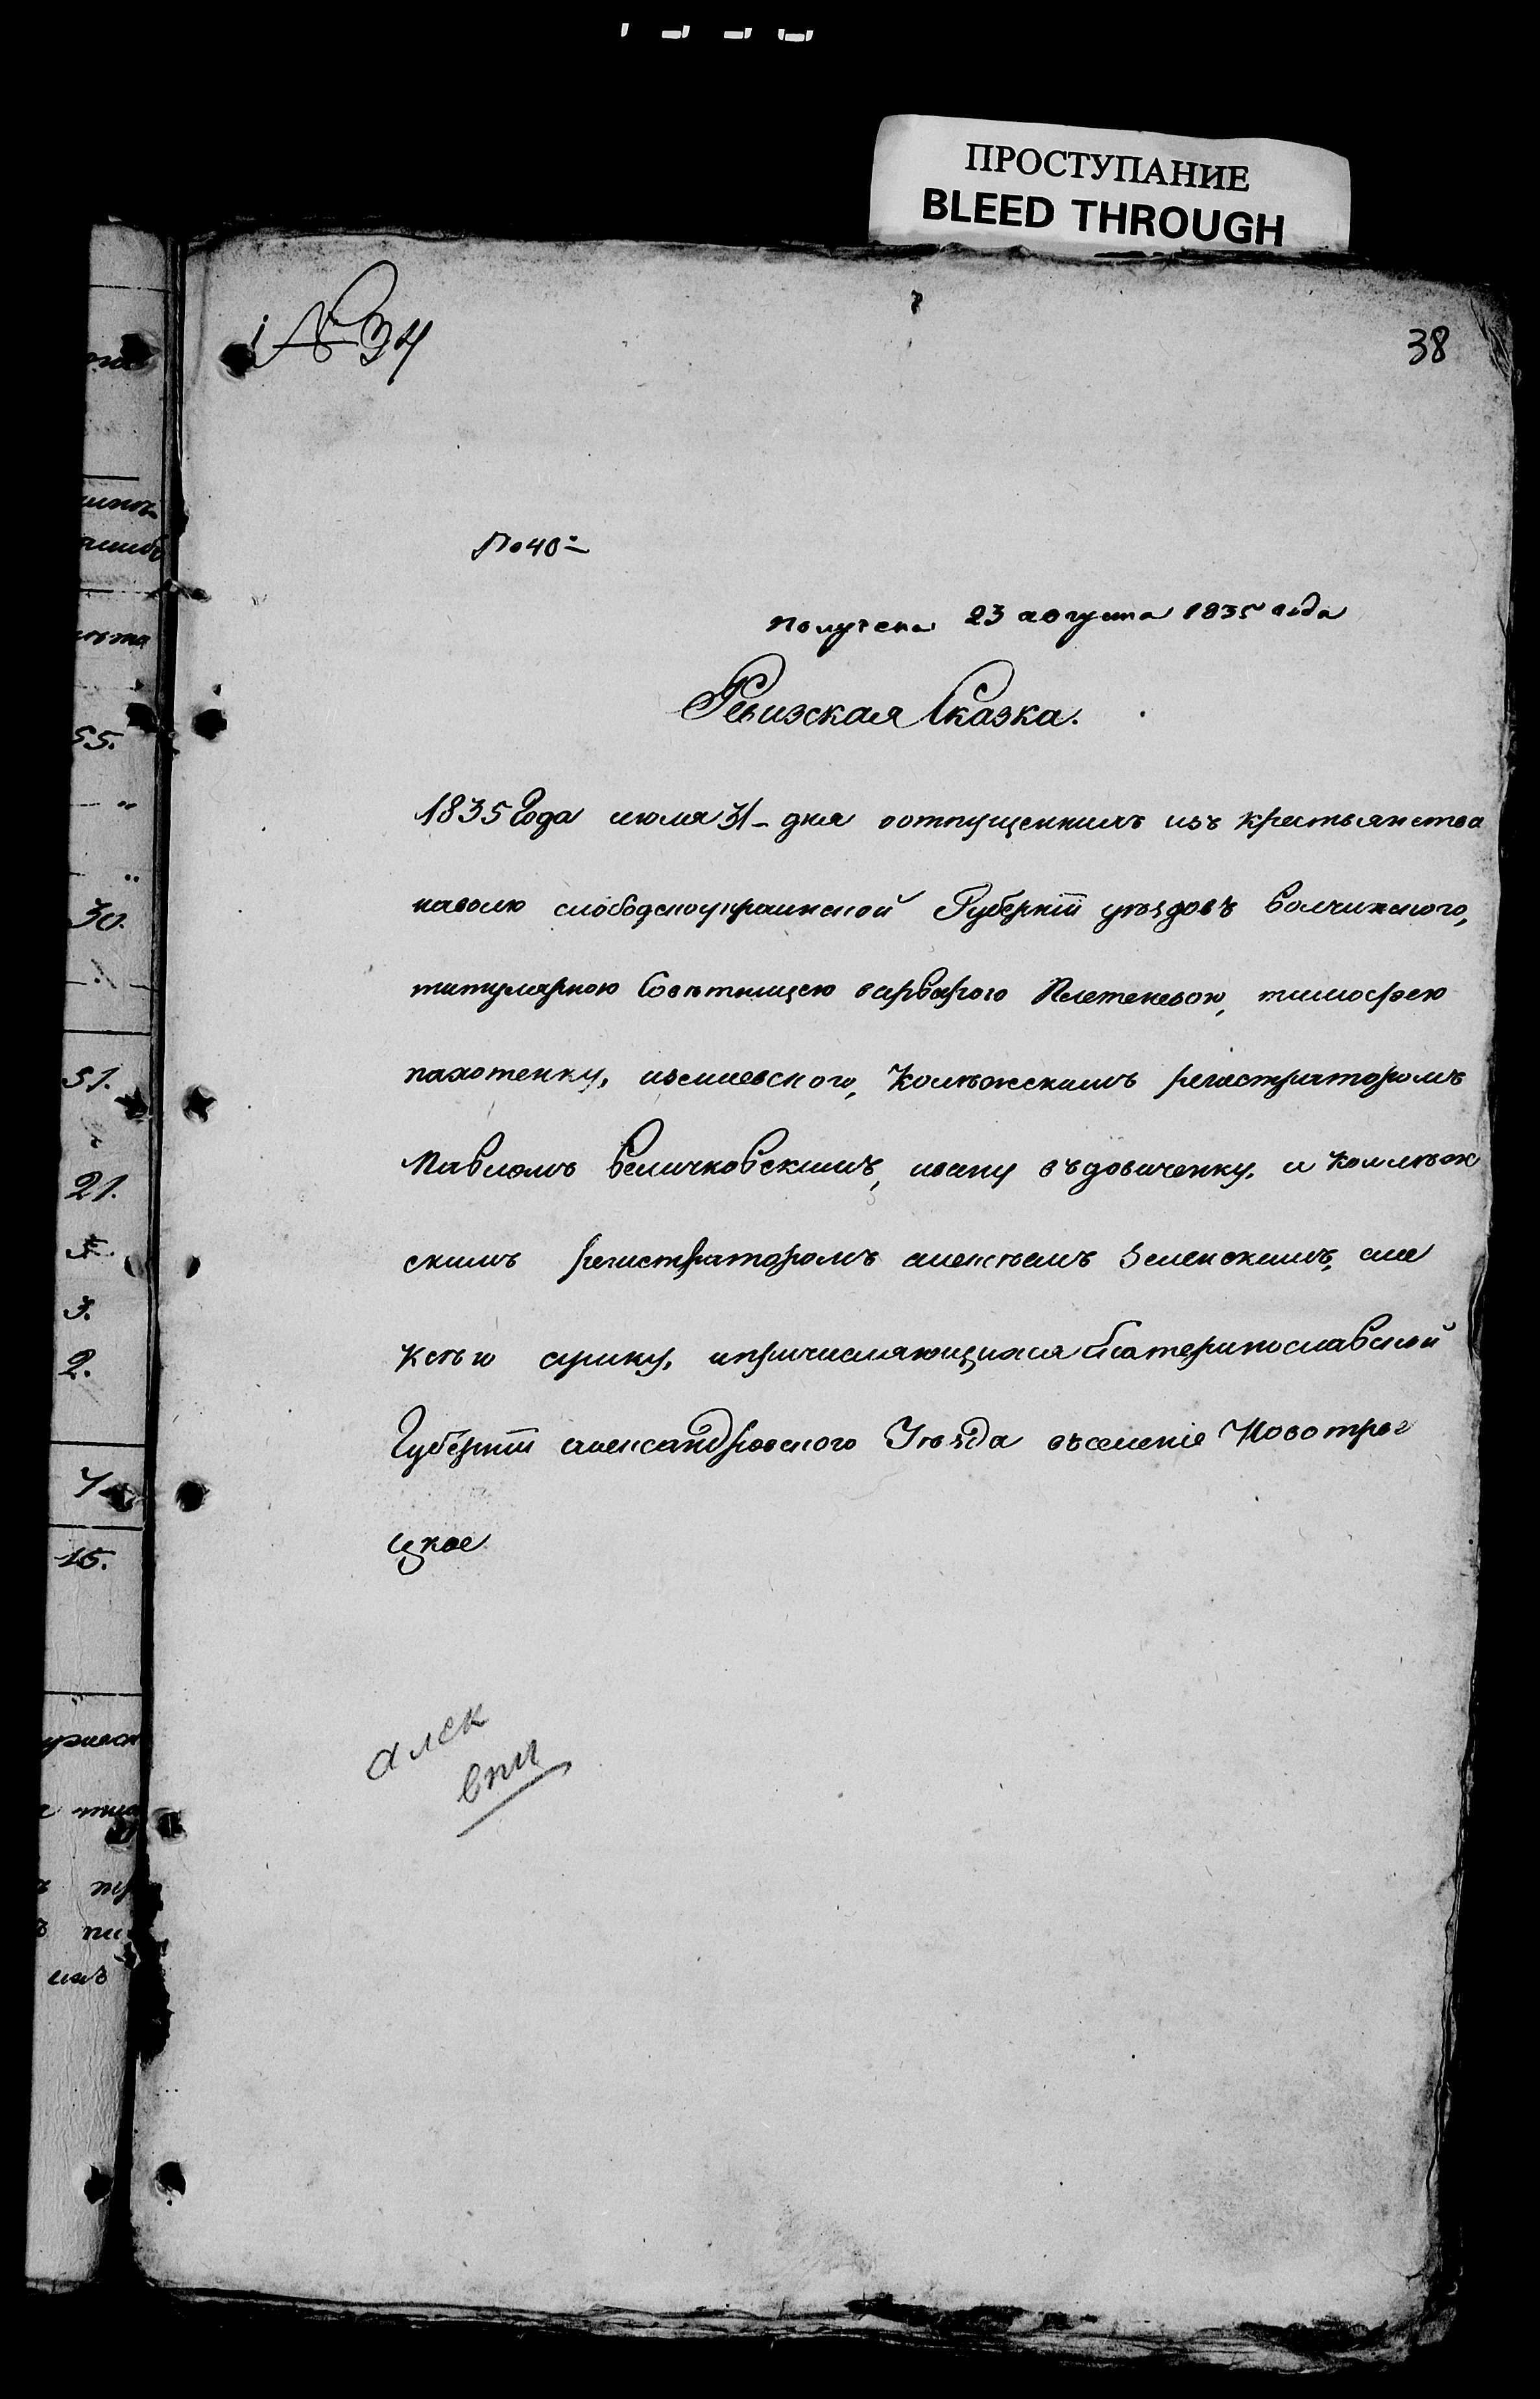 ПРОСТУПАНИЕ
BLEED THROUGH
№ 34
38
По 40
получена 23 августа 1835 года
Ревизская Сказка.
1835 Года июля 31 дня оотпущенныхъ изъ крестьянства
наволю слободскоукраинской Губерніи уѣздовъ волчинского,
титулярною Совѣтницею варварою Плетеневою, тимофею
пахотенку, изъмиевского, Колѣжскимъ регистраторомъ
Павломъ величковскимъ, ивану въдовиченку, и коллѣж
скимъ регистраторомъ алексѣемъ Зеленскимъ, але
ксѣю сушку, ипричисляющихся Екатеринославской
Губерніи александровского Уѣзда въселеніе Новотро
цкое
алек
55.
30.
51.
21.
5.
3.
2.
15.